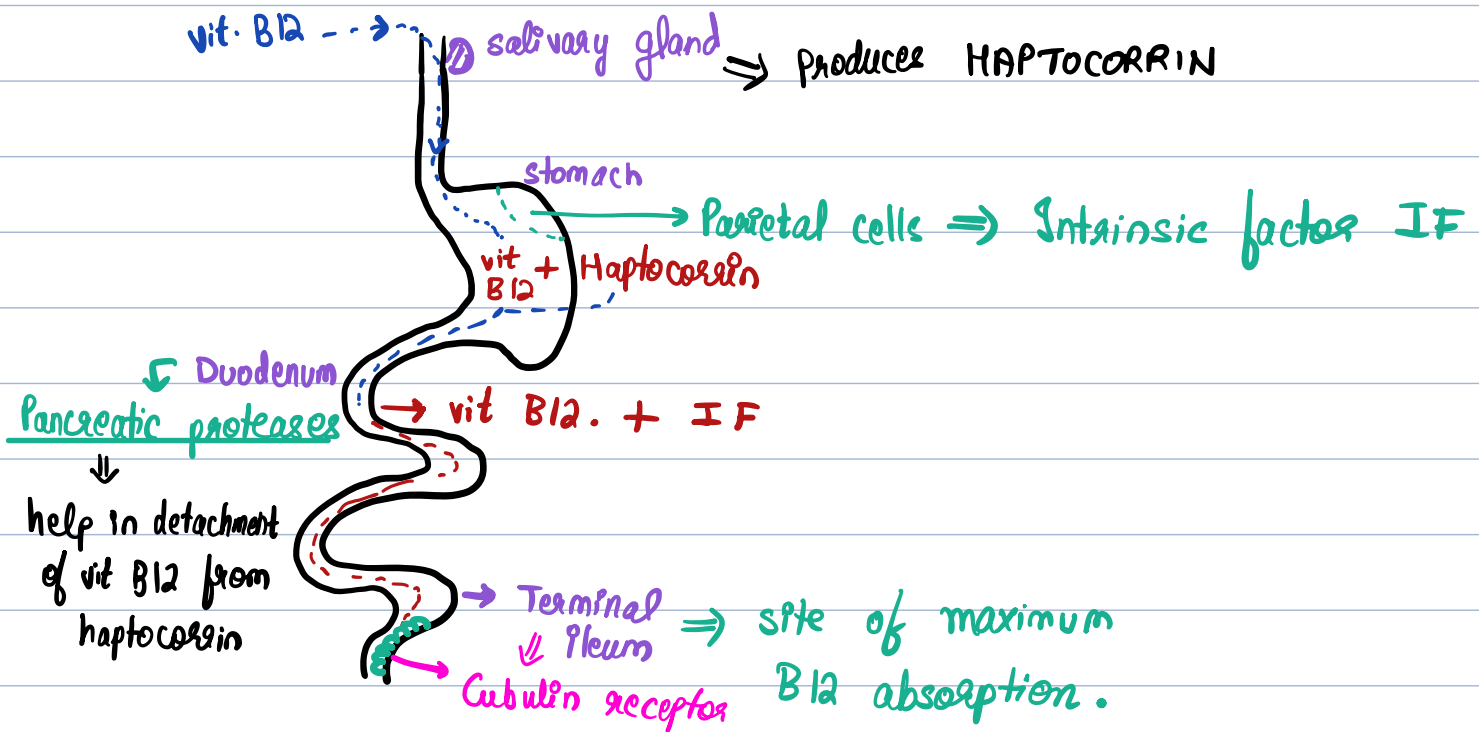 vit. B12
salivary gland ⇒ Produces HAPTOCORRIN
stomach
Parietal cells ⇒ Intrinsic factor IF
vit B12 + Haptocorrin
Duodenum
Pancreatic proteases
⇓
help in detachment
of vit B12 from
haptocorrin
→ vit B12. + IF
→ Terminal ileum ⇒ site of maximum
B12 absorption.
⇓
Cubulin receptor